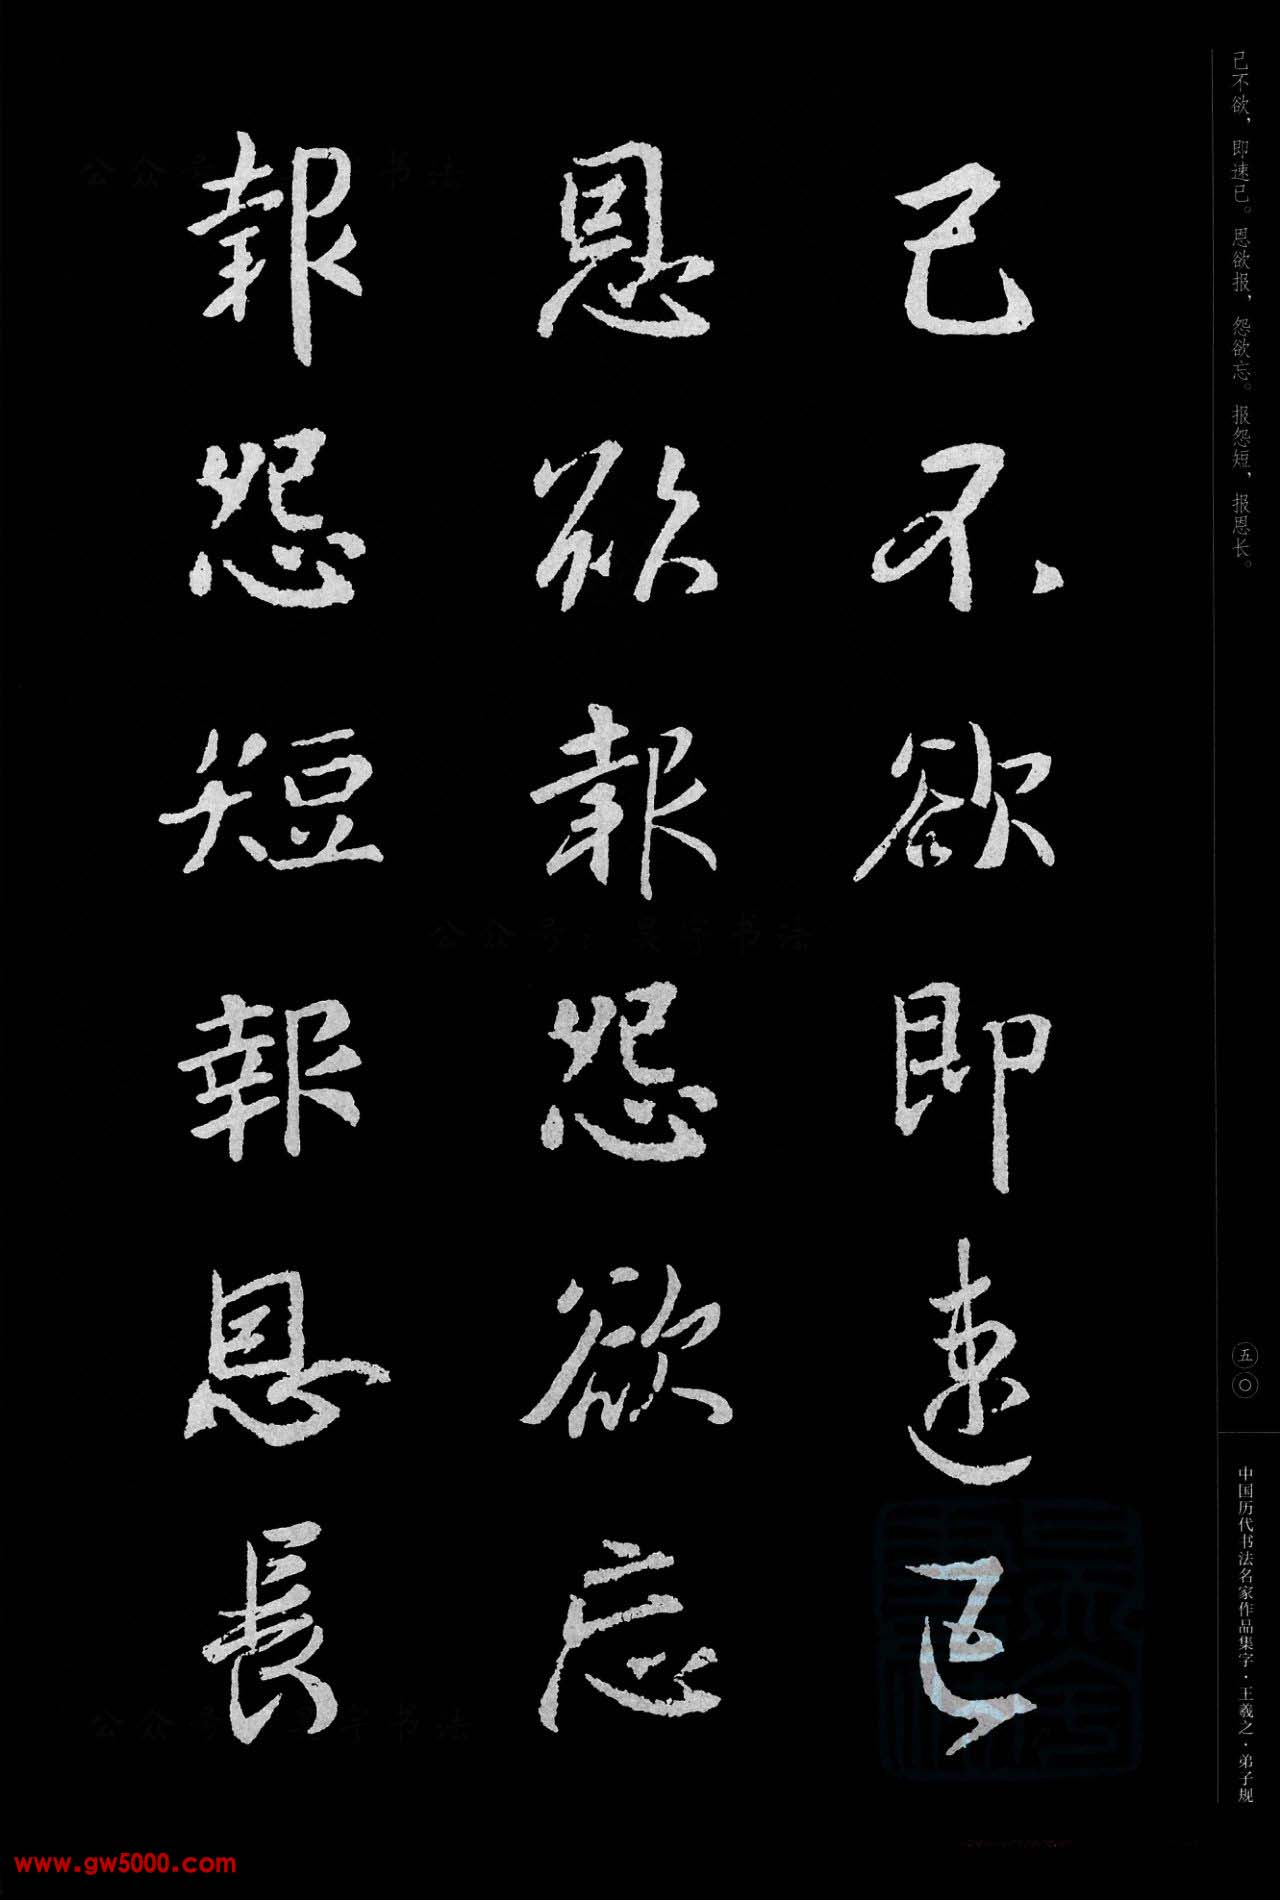 己不欲，即速已。恩欲报，怨欲忘。报怨短，报恩长。
己不欲即速已
恩欲報怨欲忘
報怨短報恩長
五〇
中国历代书法名家作品集字·王羲之·弟子规
www.gw5000.com